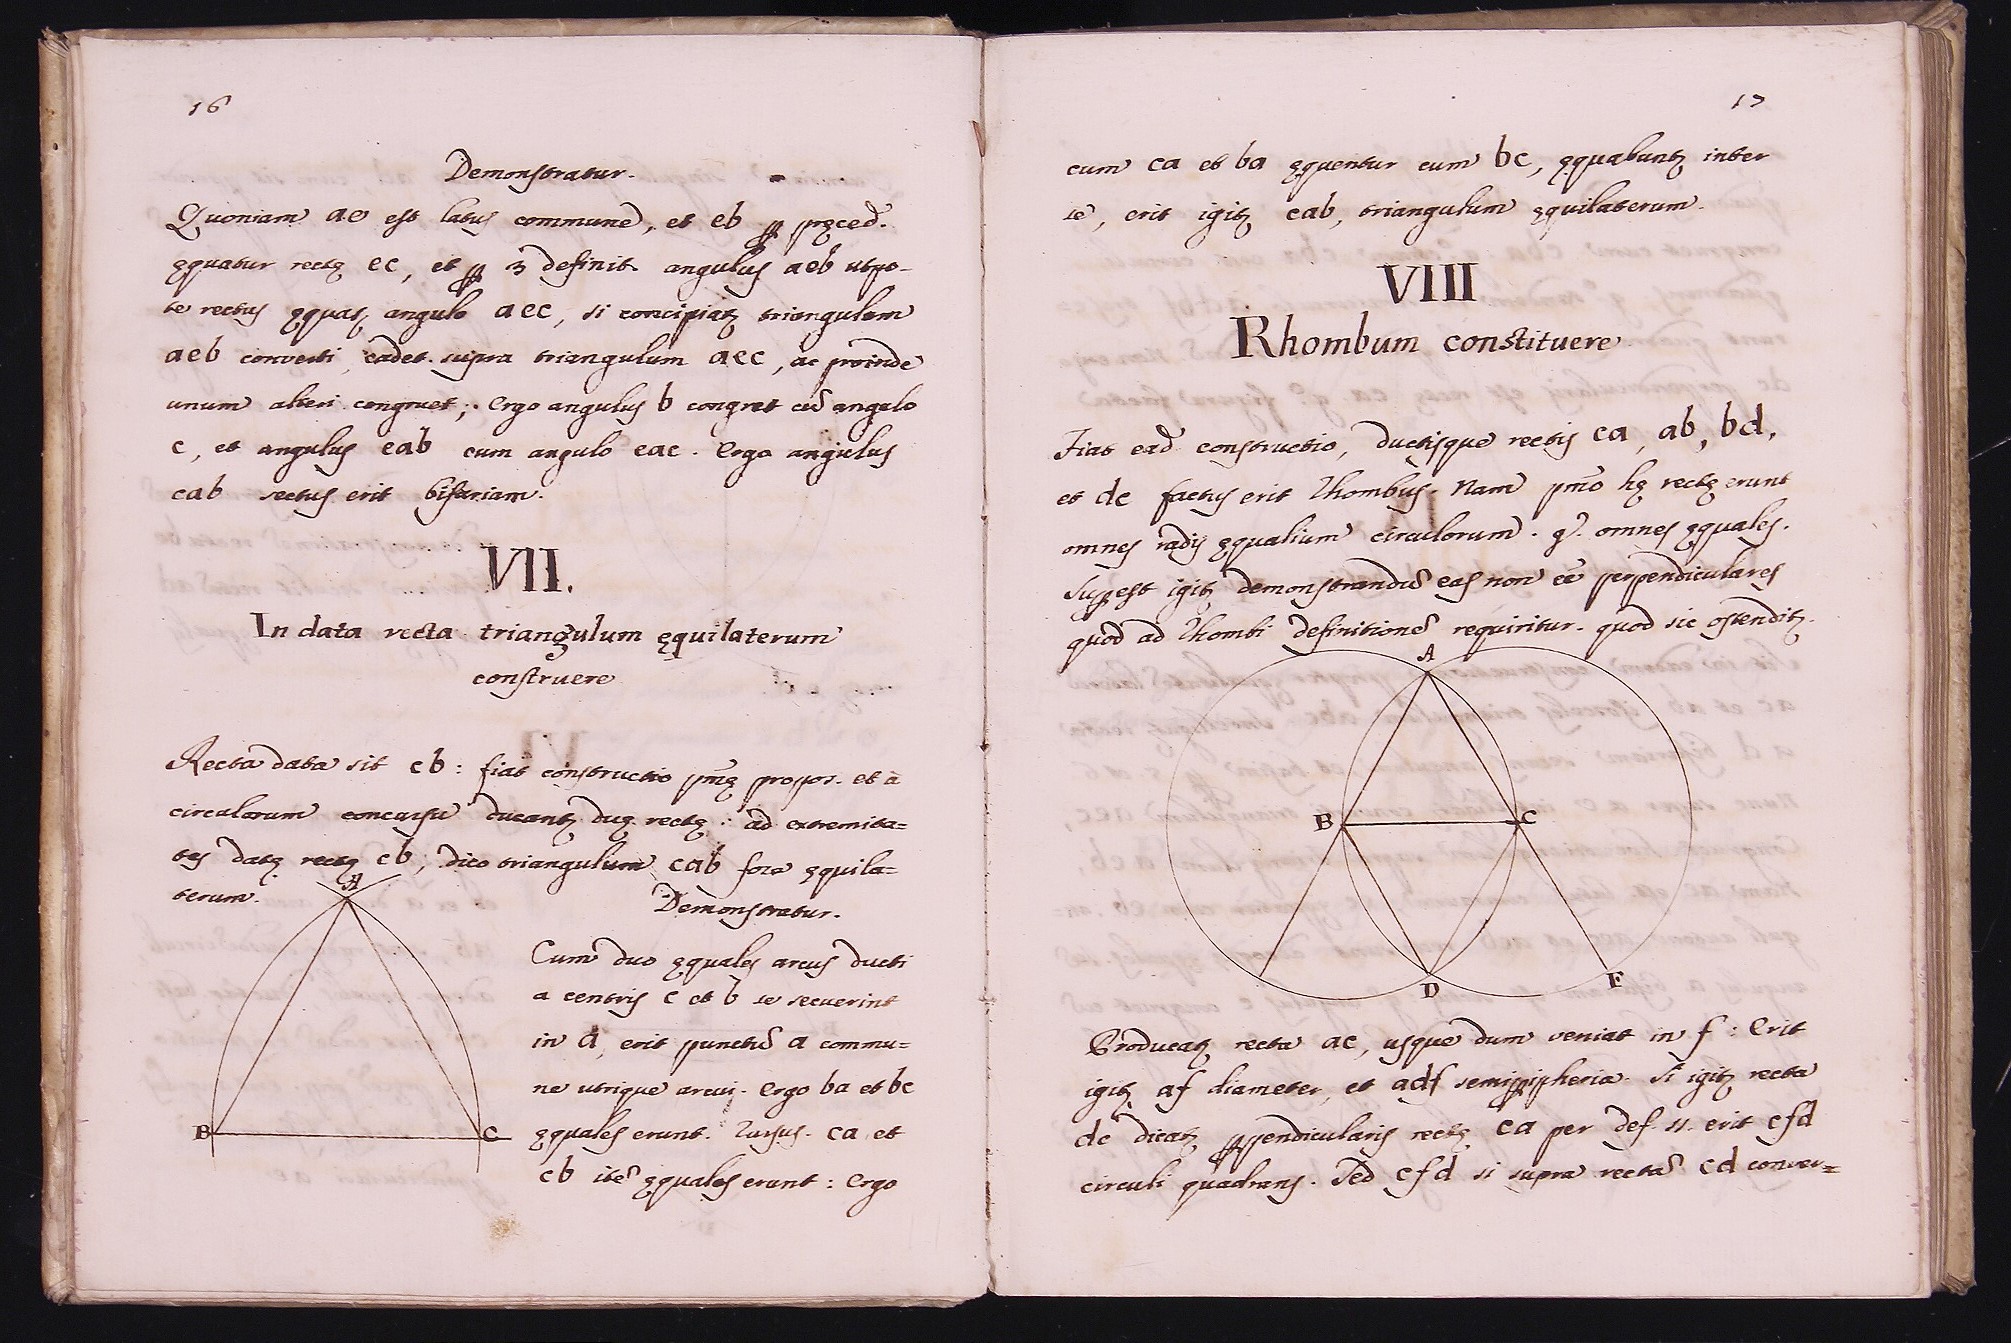 16
Demonstratur.
Quoniam ae est latus commune, et eb ꝑ pręced.
ęquatur rectę ec, et ꝑ 3 definit. angulus aeb utpo-
te rectus ęquatꝫ angulo aec, si concipiatꝫ triangulum
aeb converti, cadet supra triangulum aec, ac proinde
unum alteri congruet; ergo angulus b congret cū angulo
c, et angulus eab cum angulo eac. Ergo angulus
cab sectus erit bifariam.
VII.
In data recta triangulum ęquilaterum
construere
Recta data sit cb: fiat constructio pm̄ę propos. et a
circulorum concursu ducantꝫ duę rectę: ad extremita=
tes datę rectę cb, dico triangulum cab fore ęquila=
terum.
Demonstratur.
Cum duo ęquales arcus ducti
a centris c et b se secuerint
in a, erit punctū a commu=
ne utrique arcui. Ergo ba et bc
ęquales erunt. Rursus. ca et
cb itē ęquales erunt: Ergo
A
B
C
17
cum ca et ba ęquentur cum bc, ęquabuntꝫ inter
se, erit igitꝫ cab, triangulum ęquilaterum.
VIII
Rhombum constituere
Fiat ead̄ constructio, ductisque rectis ca, ab, bd,
et dc factus erit Rhombus. Nam pm̄o hę rectę erunt
omnes radij ęqualium circulorum. gͦ. omnes ęquales.
Suꝑest igitꝫ demonstrandū eas non eē perpendiculares
quod ad Rhombi definitionē requiritur. quod sic ostenditꝫ.
A
B
C
D
F
Producatꝫ recta ac, usque dum veniat in f: Erit
igitꝫ af diameter, et adf semiꝑipheria. Si igitꝫ recta
dc dicatꝫ ꝑpendicularis rectę ca per def. 11. erit cfd
circuli quadrans. Sed cfd si supra rectā cd conver=